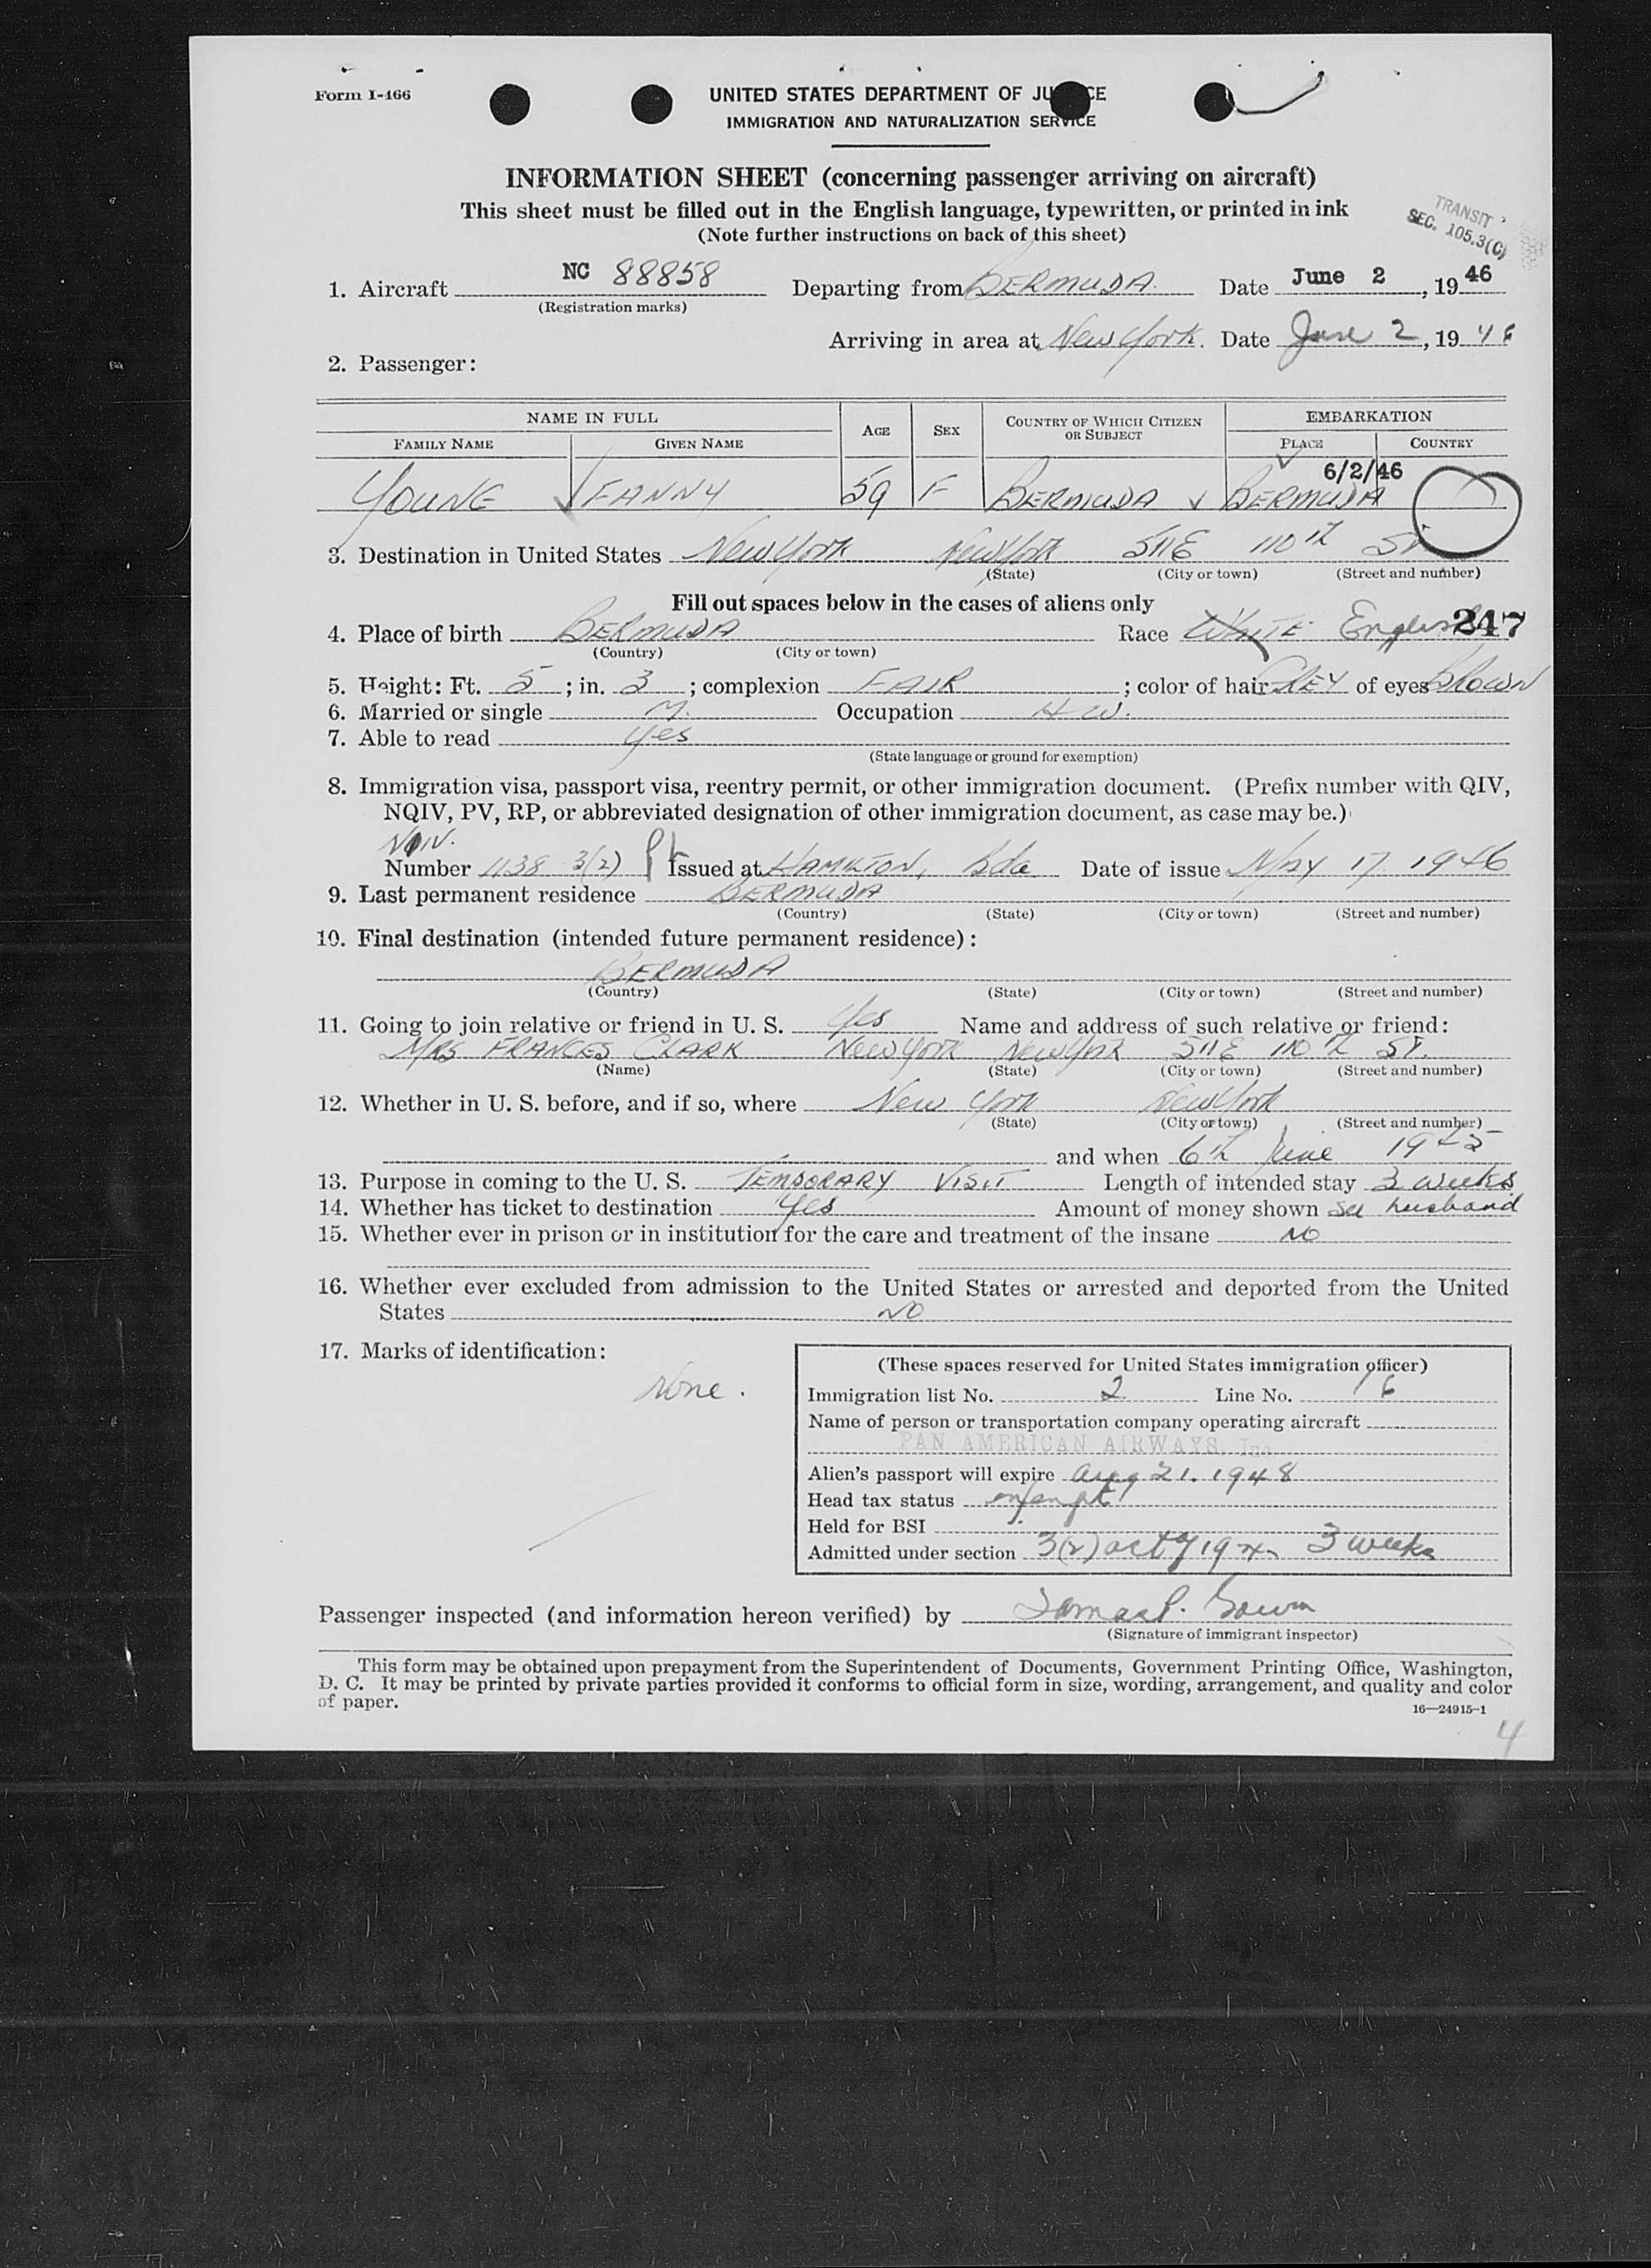 Form I-466
UNITED STATES DEPARTMENT OF JUSTICE
IMMIGRATION AND NATURALIZATION SERVICE
INFORMATION SHEET (concerning passenger arriving on aircraft)
This sheet must be filled out in the English language, typewritten, or printed in ink
(Note further instructions on back of this sheet)
TRANSIT
SEC. 105.3(C)
1. Aircraft NC 88858 Departing from BERMUDA. Date June 2, 1946
(Registration marks)
Arriving in area at New York. Date June 2, 1946
2. Passenger:
NAME IN FULL AGE SEX COUNTRY OF WHICH CITIZEN OR SUBJECT EMBARKATION
FAMILY NAME GIVEN NAME PLACE COUNTRY
6/2/46
YOUNG FANNY 59 F BERMUDA BERMUDA
3. Destination in United States New York New York 511 E 110th St
(State) (City or town) (Street and number)
Fill out spaces below in the cases of aliens only
4. Place of birth BERMUDA Race WHITE English 247
(Country) (City or town)
5. Height: Ft. 5; in. 3; complexion FAIR; color of hair GREY of eyes BROWN
6. Married or single M. Occupation H W.
7. Able to read yes
(State language or ground for exemption)
8. Immigration visa, passport visa, reentry permit, or other immigration document. (Prefix number with QIV,
NQIV, PV, RP, or abbreviated designation of other immigration document, as case may be.)
Number 1138 3(2) Issued at HAMILTON, Bda Date of issue MAY 17 1946
9. Last permanent residence BERMUDA
(Country) (State) (City or town) (Street and number)
10. Final destination (intended future permanent residence):
BERMUDA
(Country) (State) (City or town) (Street and number)
11. Going to join relative or friend in U. S. Yes Name and address of such relative or friend:
MRS FRANCES CLARK New York New York 511 E 110th St.
(Name) (State) (City or town) (Street and number)
12. Whether in U. S. before, and if so, where New York New York
(State) (City or town) (Street and number)
and when 6th June 1945
13. Purpose in coming to the U. S. TEMPORARY VISIT Length of intended stay 3 weeks
14. Whether has ticket to destination Yes Amount of money shown see husband
15. Whether ever in prison or in institution for the care and treatment of the insane NO
16. Whether ever excluded from admission to the United States or arrested and deported from the United
States NO
17. Marks of identification:
None.
(These spaces reserved for United States immigration officer)
Immigration list No. 2 Line No. 6
Name of person or transportation company operating aircraft
PAN AMERICAN AIRWAYS, Inc.
Alien's passport will expire Aug 21. 1948
Head tax status exempt
Held for BSI
Admitted under section 3(2) act of 1924 3 weeks
Passenger inspected (and information hereon verified) by
(Signature of immigrant inspector)
This form may be obtained upon prepayment from the Superintendent of Documents, Government Printing Office, Washington,
D. C. It may be printed by private parties provided it conforms to official form in size, wording, arrangement, and quality and color
of paper.
16—24915-1
4